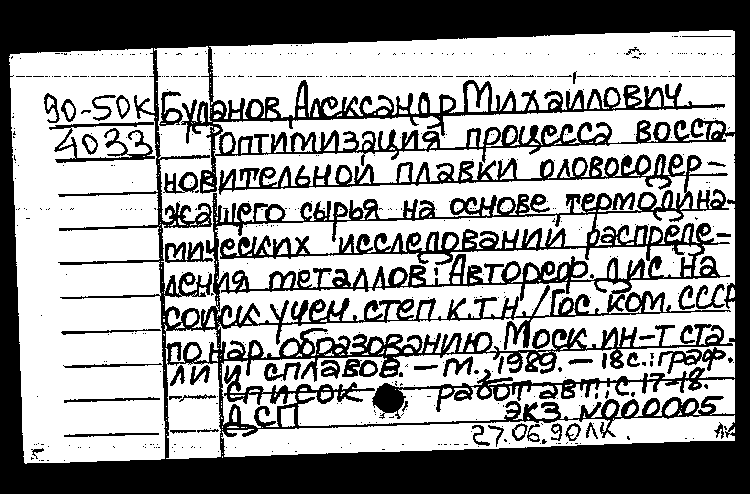 90-50К Буланов, Александр Михайлович.
4033 Оптимизация процесса восста-
новительной плавки оловосодер-
жащего сырья на основе термодина-
мических исследований распреде-
ления металлов: Автореф. дис. на
соиск. учен. степ. к.т.н. / Гос. ком. СССР
по нар. образованию, Моск. ин-т ста-
ли и сплавов. - М., 1989. - 18 с.: граф.
Список работ авт.: с. 17-18.
ДСП Экз. N000005
27.06.90 ЛК.